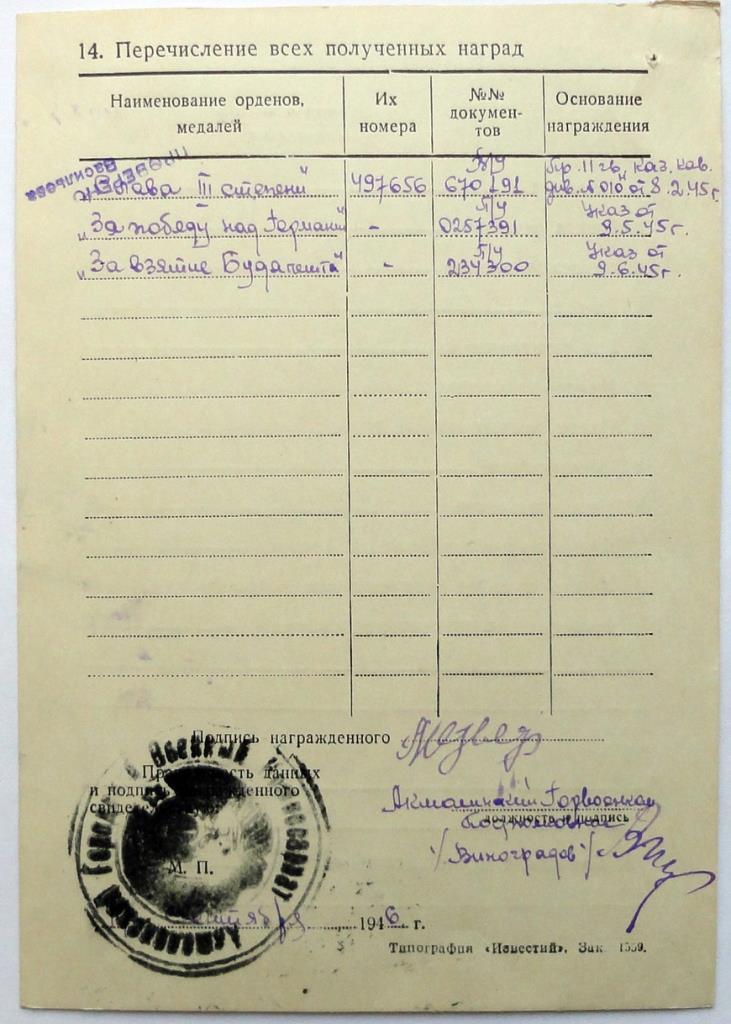 14. Перечисление всех полученных наград
Наименование орденов, медалей
Их номера
№№ документов
Основание награждения
ПРОВЕРЕНО
Васильева
"Слава III степени" 497656 П/У 670191 Пр. 11 гв. каз. кав. див. № 010 от 8.2.45 г.
"За победу над Германией" - П/У 0257391 Указ от 9.5.45 г.
"За взятие Будапешта" - П/У 234300 Указ от 9.6.45 г.
Подпись награжденного
данных
и награжденного
Акмолинский Горвоенком
должность и подпись
Подполковник
/Виноградов/
М. П.
Военный
1946 г.
Типография «Известий». Зак.